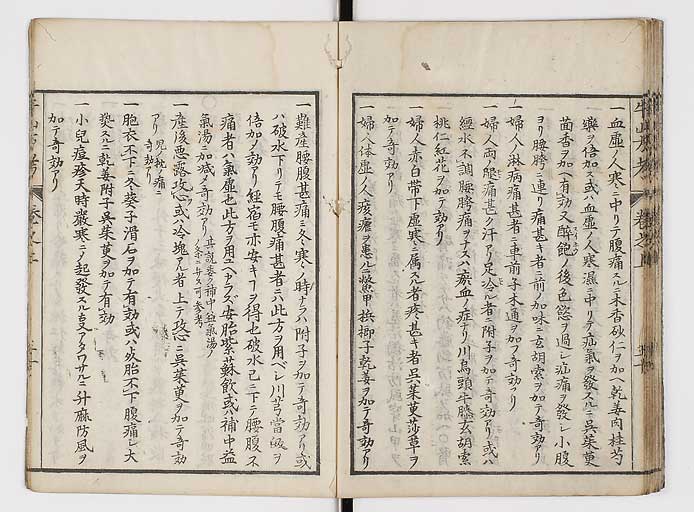 一血虚ノ人寒ニ中リテ腹痛ニハ木香砂仁ヲ加ヘ乾姜肉桂芍
藥ヲ倍加ス或ハ血虚ノ人寒濕ニ中リテ疝氣ヲ發スルニ呉茱萸
茴香ヲ加ヘ有効又醉飽ノ後色慾ヲ過シ疝痛ヲ發シ小腹
ヨリ腰胯ニ連リ痛甚キ者ニ前ノ加味ニ玄胡索ヲ加テ奇効アリ
一婦人淋病痛甚者ニ車前子木通ヲ加テ奇効アリ
一婦人両腿痛甚汗アリ足冷ル者ニ附子ヲ加テ奇効アリ或ハ
經水不調腰胯痛ヲナスハ瘀血ノ症ナリ川烏頭牛膝玄胡索
桃仁紅花ヲ加テ奇効アリ
一婦人赤白帯下虚寒ニ属スル者疼甚キ者ニ呉茱萸莎草ヲ
加テ奇効アリ
一婦人体虚ノ人痎瘧ヲ患ルニ鱉甲梹榔子乾姜ヲ加テ奇効アリ
一難産腰腹甚痛ニ冬寒ノ時ナラハ附子ヲ加テ奇効アリ或
ハ破水下リテモ腰腹痛甚者ニハ此方ヲ用ベシ川芎當皈ヲ
倍加ノ効アリ經宿モ亦安キヿヲ得也破水已ニ下テ腰腹ス
痛者ハ氣虚也此方ヲ用ユヘカラズ安胎紫蘇飲或ハ補中益
氣湯ニ加減ノ奇効アリ其説委ク補中益氣湯ノ
条ニ母ス可參考
一産後惡露攻心或ハ冷塊アル者上テ攻心ニ呉茱萸ヲ加テ奇効
アリ児枕ノ痛ニ
奇効アリ
一胞衣不下ニ冬葵子滑石ヲ加テ有効或ハ歿胎不下腹痛シ大
熱スルニ乾姜附子呉茱萸ヲ加テ有効
一小兒痘疹天時嚴寒ニノ起發スル亥アタワサルニ升麻防風ヲ
加テ奇効アリ